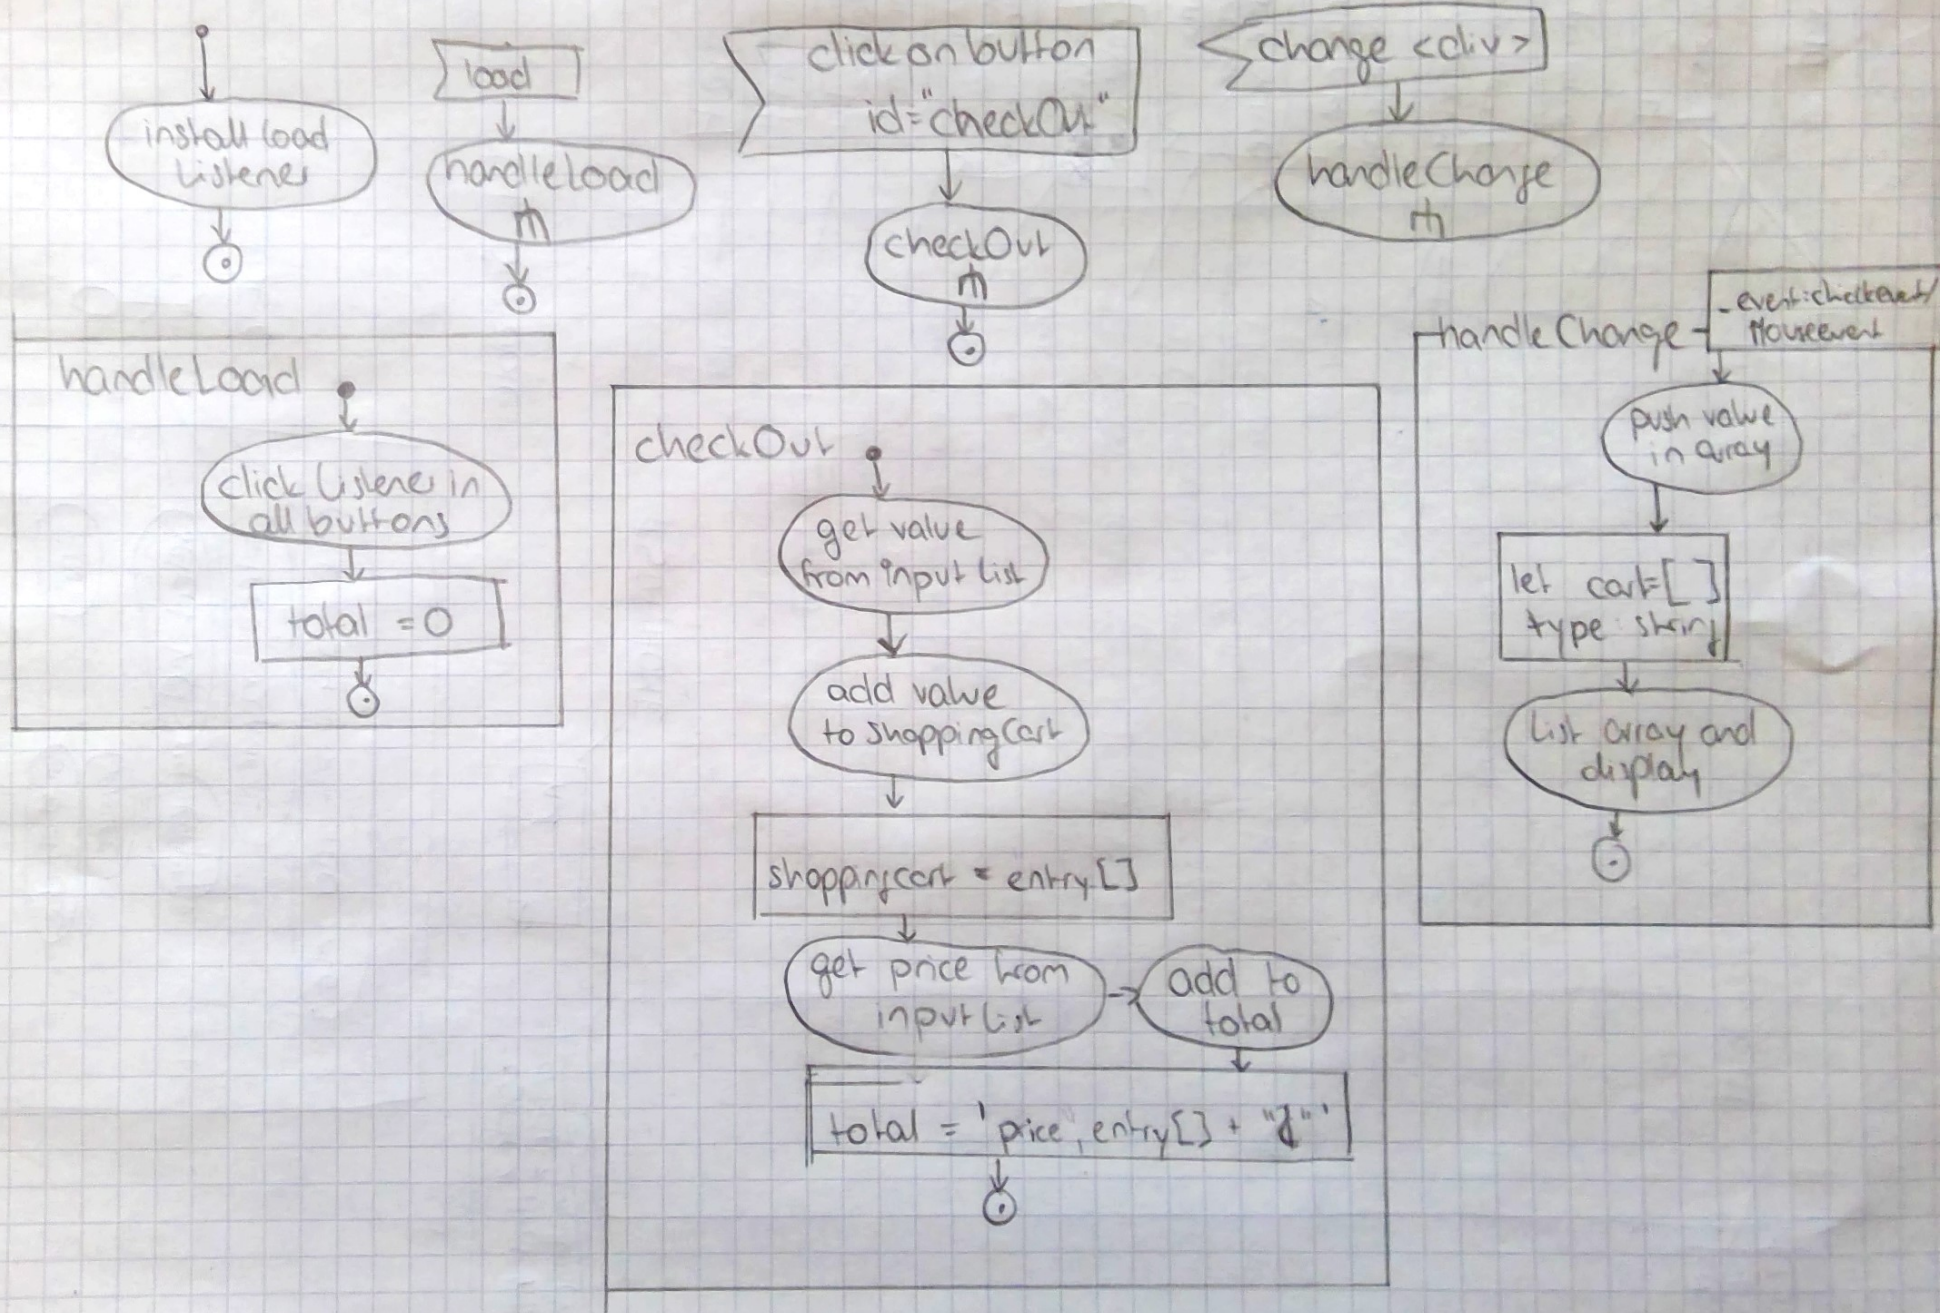 install load
Listener
load
handleLoad
click on button
id="checkOut"
checkOut
change <div>
handleChange
handleLoad
click Listener in
all buttons
total = 0
checkOut
get value
from input list
add value
to shoppingCart
shoppingcart = entry[]
get price from
input list
add to
total
total = 'price, entry[] +
handleChange
Mouseevent
push value
in array
let cart=[]
type: string
List array and
display